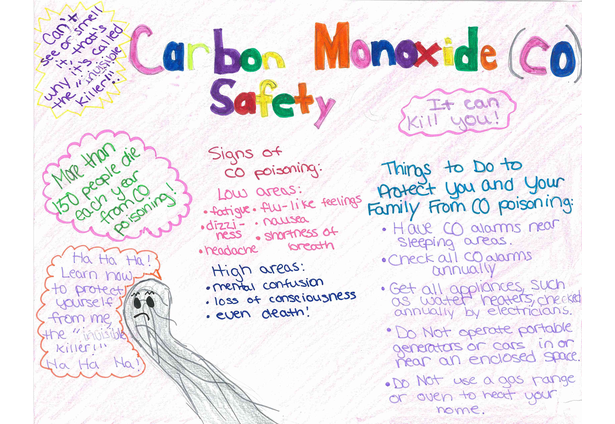 Can't
see or smell
it, that's
why it's called
the "invisible
killer!"
Carbon Monoxide (CO)
Safety
It can
kill you!
More than
150 people die
each year
from CO
poisoning!
Signs of
CO poisoning:
Low areas:
• fatigue • flu-like feelings
• dizzi- • nausea
ness • shortness of
• headache breath
High areas:
• mental confusion
• loss of consciousness
• even death!
Things to Do to
Protect You and Your
Family From CO poisoning:
• Have CO alarms near
sleeping areas.
• Check all CO alarms
annually
• Get all appliances, such
as water heaters, checked
annually by electricians.
• Do Not operate portable
generators or cars in or
near an enclosed space.
• Do Not use a gas range
or oven to heat your
home.
Ha Ha Ha!
Learn how
to protect
yourself
from me,
the "invisible
killer!"
Ha Ha Ha!